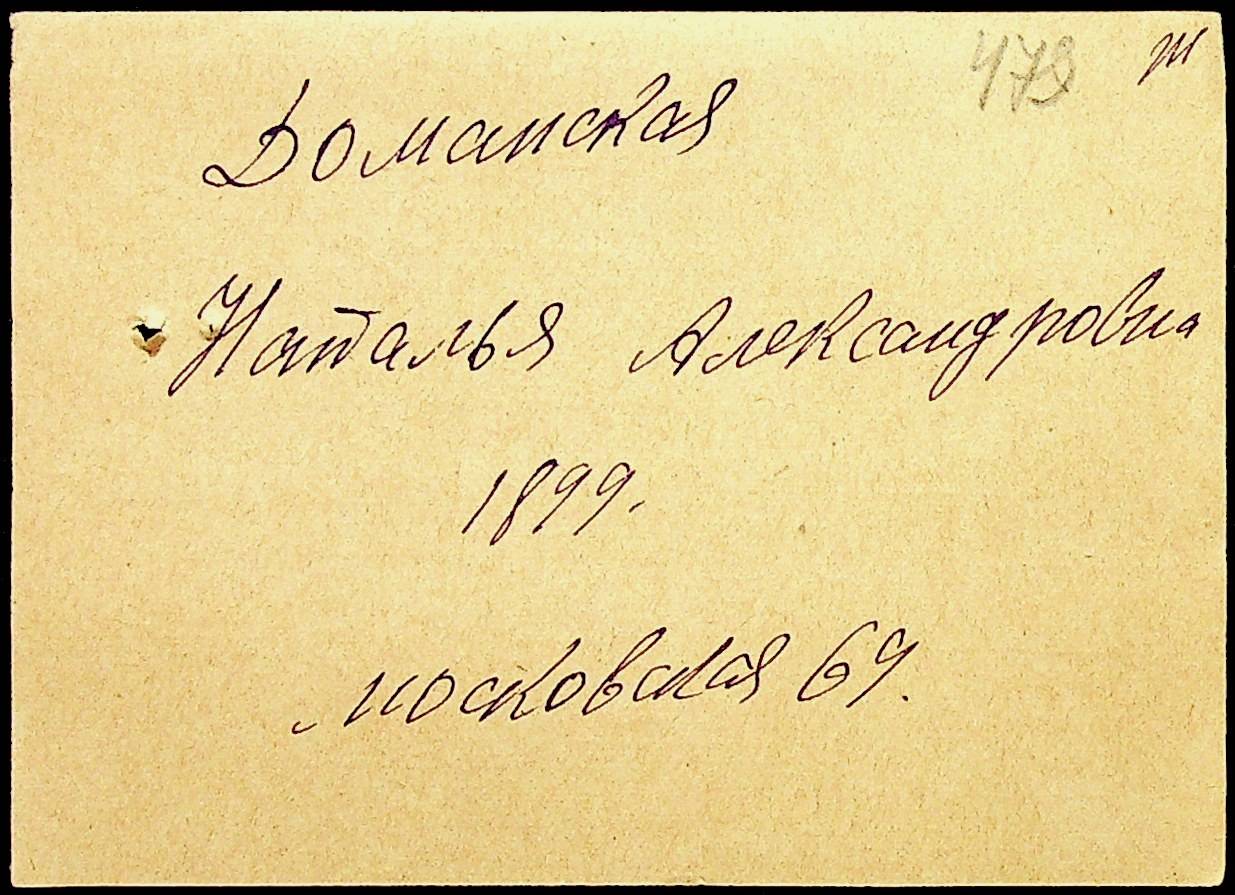 479 т
Доманская
Наталья Александровна
1899.
Московская 69.